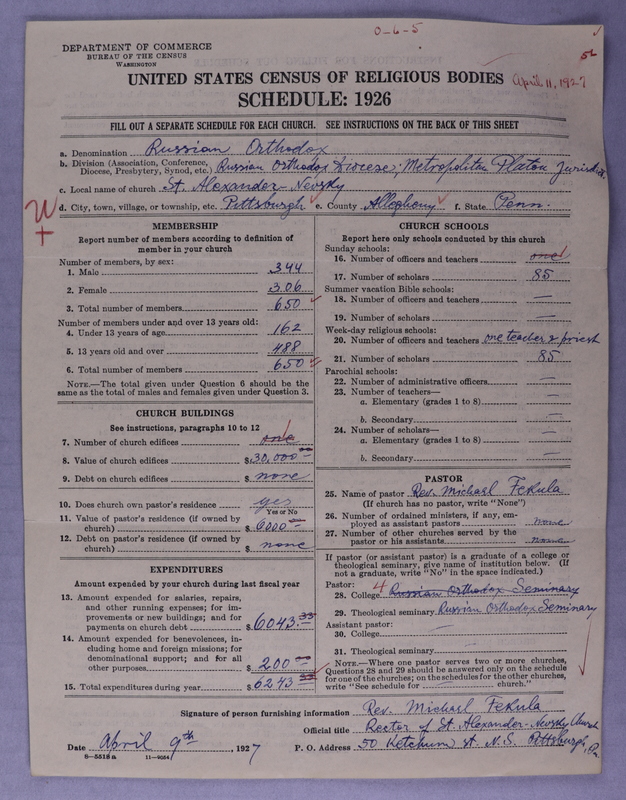 0-6-5
52
DEPARTMENT OF COMMERCE
BUREAU OF THE CENSUS
WASHINGTON
UNITED STATES CENSUS OF RELIGIOUS BODIES
April 11, 1927
SCHEDULE: 1926
FILL OUT A SEPARATE SCHEDULE FOR EACH CHURCH. SEE INSTRUCTIONS ON THE BACK OF THIS SHEET
a. Denomination Russian Orthodox
b. Division (Association, Conference, Diocese, Presbytery, Synod, etc.) Russian Orthodox Diocese; Metropolitan Platon Jurisdict.
c. Local name of church St. Alexander-Nevsky
d. City, town, village, or township, etc. Pittsburgh e. County Allegheny f. State Penn.
MEMBERSHIP
Report number of members according to definition of member in your church
Number of members, by sex:
1. Male 344
2. Female 306
3. Total number of members 650
Number of members under and over 13 years old:
4. Under 13 years of age 162
5. 13 years old and over 488
6. Total number of members 650
NOTE.—The total given under Question 6 should be the
same as the total of males and females given under Question 3.
CHURCH BUILDINGS
See instructions, paragraphs 10 to 12
7. Number of church edifices one
8. Value of church edifices $ 30,000 00
9. Debt on church edifices $ none
10. Does church own pastor's residence? yes
Yes or No
11. Value of pastor's residence (if owned by
church) $ 6000 00
12. Debt on pastor's residence (if owned by
church) $ none
EXPENDITURES
Amount expended by your church during last fiscal year
13. Amount expended for salaries, repairs,
and other running expenses; for im-
provements or new buildings; and for
payments on church debt $ 6043.33
14. Amount expended for benevolences, in-
cluding home and foreign missions; for
denominational support; and for all
other purposes $ 200 00
15. Total expenditures during year $ 6243 33
CHURCH SCHOOLS
Report here only schools conducted by this church
Sunday schools:
16. Number of officers and teachers one
17. Number of scholars 85
Summer vacation Bible schools:
18. Number of officers and teachers —
19. Number of scholars —
Week-day religious schools:
20. Number of officers and teachers one teacher & priest
21. Number of scholars 85
Parochial schools:
22. Number of administrative officers —
23. Number of teachers—
a. Elementary (grades 1 to 8) —
b. Secondary —
24. Number of scholars—
a. Elementary (grades 1 to 8) —
b. Secondary —
PASTOR
25. Name of pastor Rev. Michael Fekula
(If church has no pastor, write "None")
26. Number of ordained ministers, if any, em-
ployed as assistant pastors none
27. Number of other churches served by the
pastor or his assistants none
If pastor (or assistant pastor) is a graduate of a college or
theological seminary, give name of institution below. (If
not a graduate, write "No" in the space indicated.)
Pastor:
28. College 4 Russian Orthodox Seminary
29. Theological seminary Russian Orthodox Seminary
Assistant pastor:
30. College —
31. Theological seminary —
NOTE.—Where one pastor serves two or more churches,
Questions 28 and 29 should be answered only on the schedule
for one of the churches; on the schedules for the other churches,
write "See schedule for — church."
Signature of person furnishing information Rev. Michael Fekula
Official title Rector of St. Alexander-Nevsky Church
Date April 9th 1927 P. O. Address 50 Ketchum st. N.S. Pittsburgh, Pa.
8—5518a 11—9054